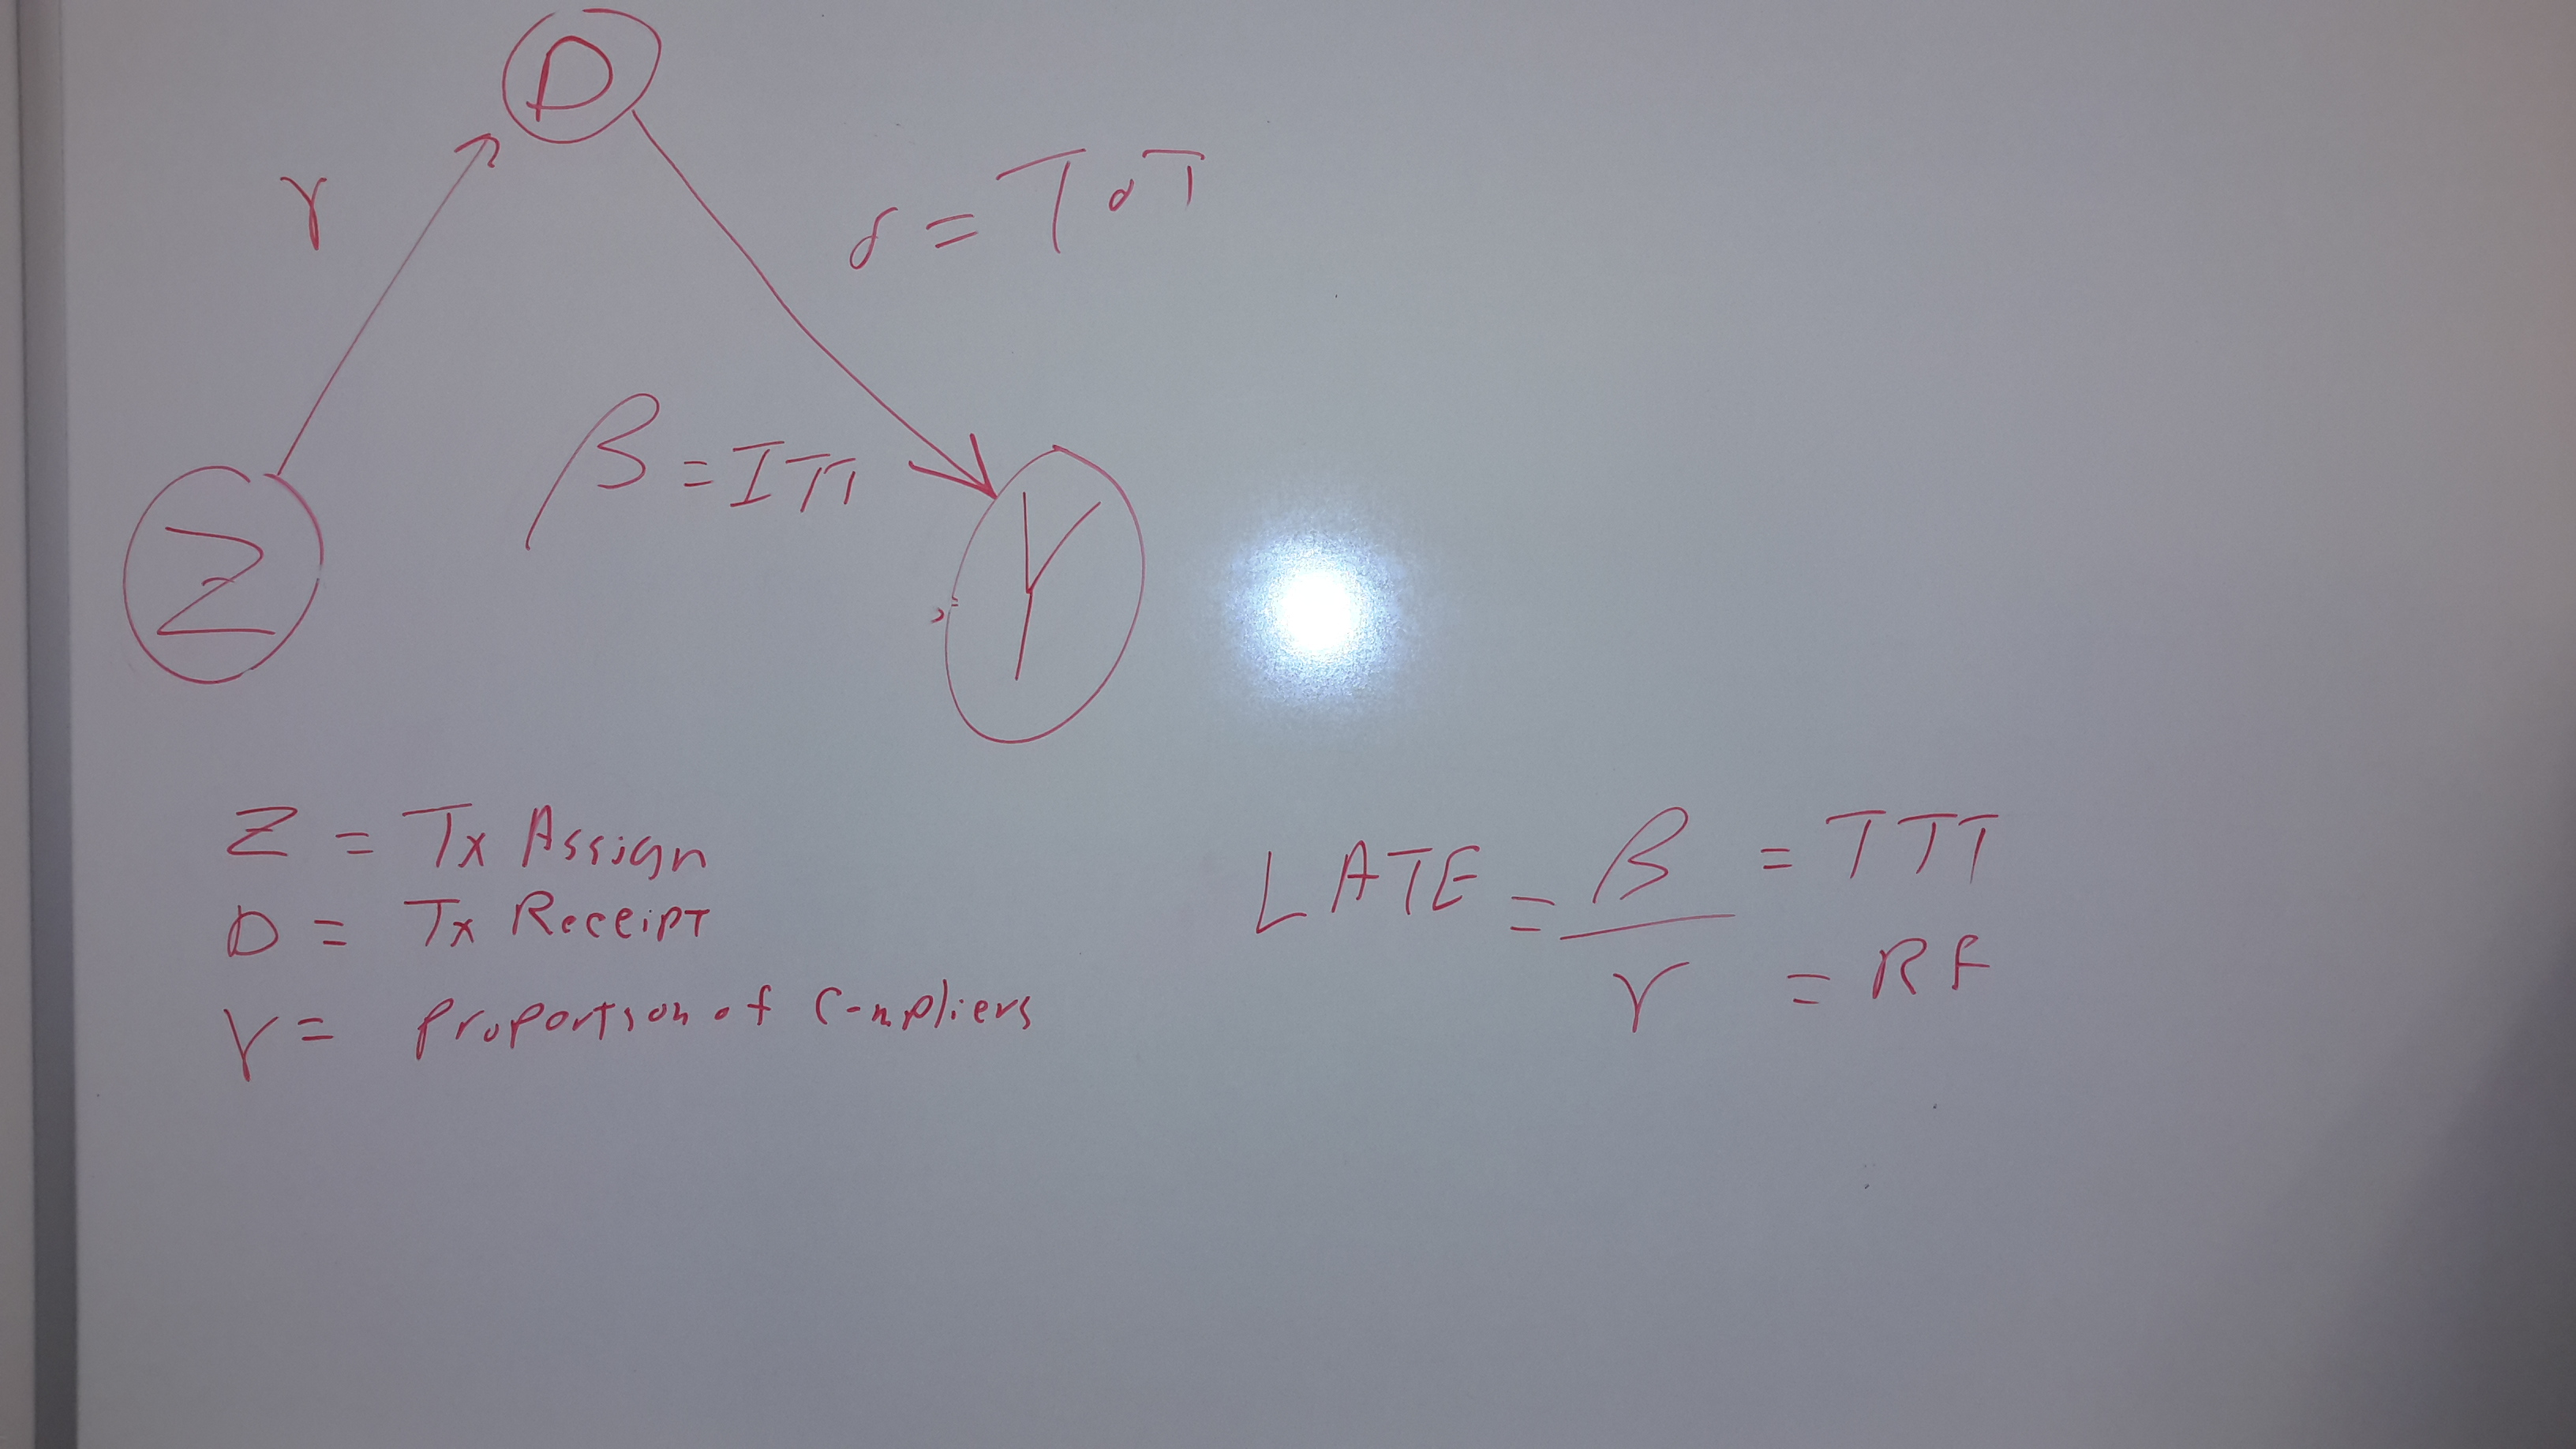 D
γ
δ = ToT
β = ITT
Z
Y
Z = Tx Assign
D = Tx Receipt
γ = Proportion of Compliers
LATE = β/γ
= TTT
= RF